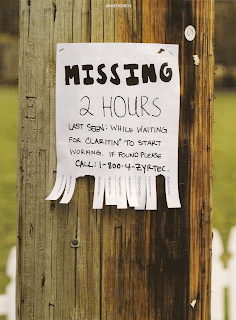 ADVERTISEMENT
MISSING
2 HOURS
LAST SEEN: WHILE WAITING
FOR CLARITIN® TO START
WORKING. IF FOUND PLEASE
CALL: 1-800-4-ZYRTEC.